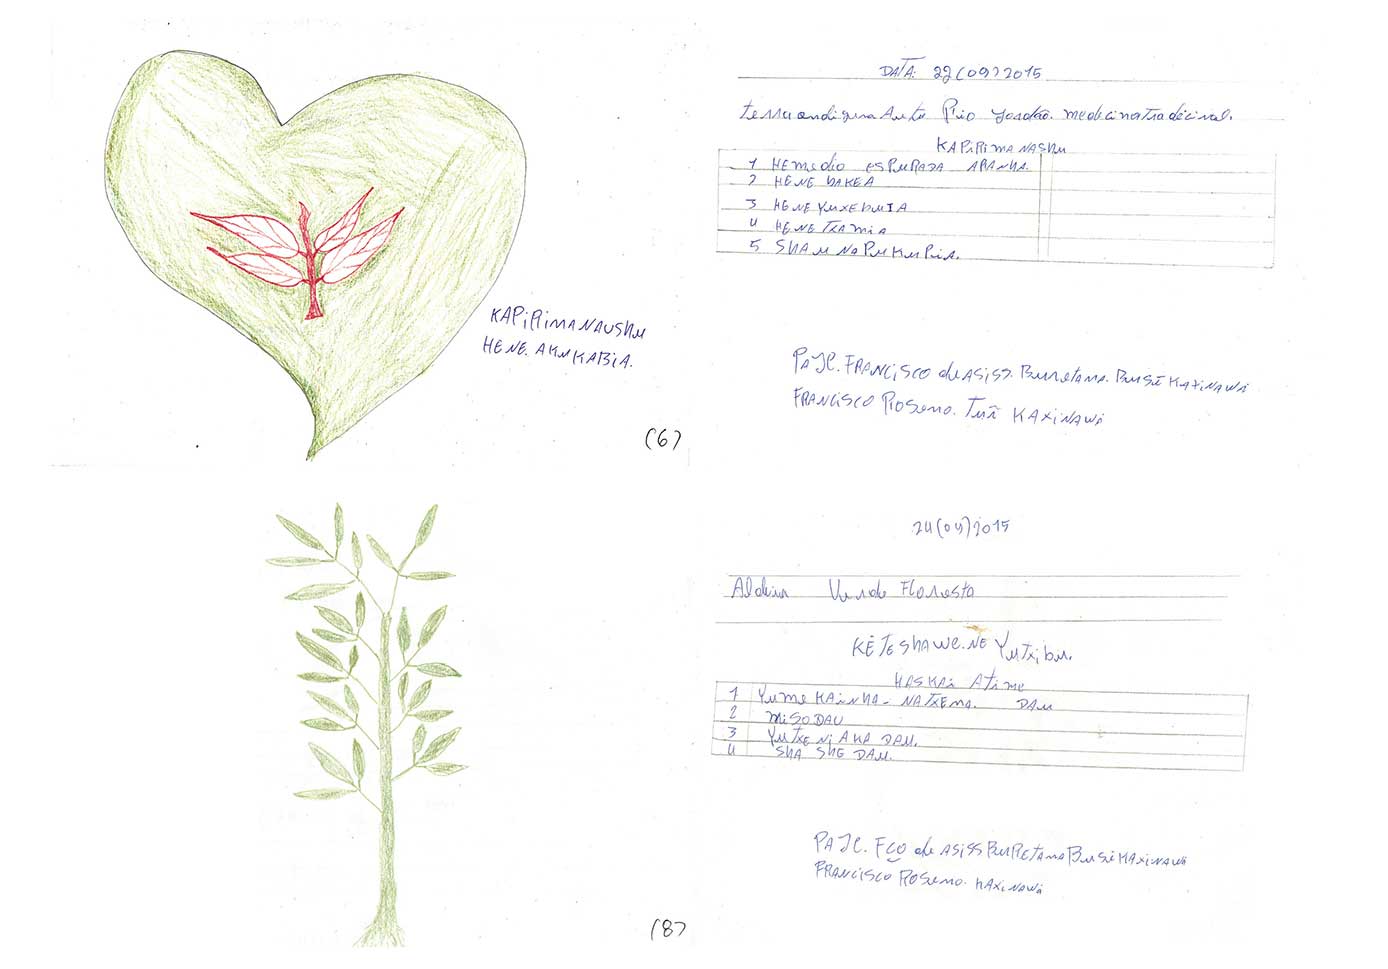 KAPiRiMANAUSHU
HENE. AKUKABiA.
(6)
DATA: 22(09)2015
terra Rio Jordão. medicina tradicinal.
KAPiRiMANASHU
1 HEMedio ESPURADA ARANHA.
2 HENE bAKEA
3 HENE YUXEbUIA
4 HENE TXAMiA
5 SHAUNAPUKURIA.
PAJE. FRANCISCO de ASiSS. BUSẼ KAXINAWÁ
FRANCISCO ROSeno. Tuĩ KAXINAWÁ
(8)
24(09)2015
Aldeia Verde Floresta
KẼTESHAWE.NE Yutxibu.
HASKAi ATiMe
1 YUMEKAINHA- NATXEMA. DAU
2 MiSODAU
3 YUTXENiAKA DAU.
4 SHA SHE DAU.
PAJE. FCO de ASiSS BUSẼ KAXiNAWÁ
FRANCISCO ROSeno. KAXiNAWÁ